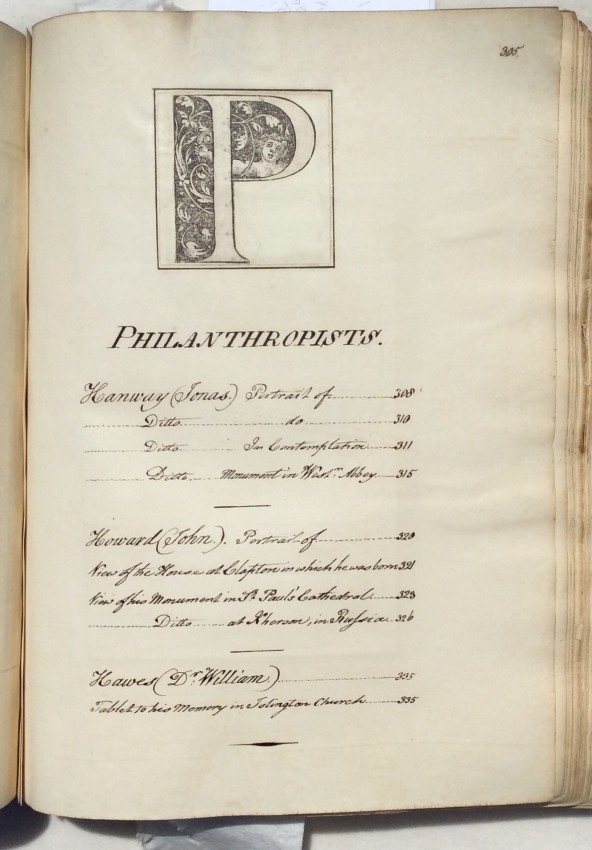 305
P
PHILANTHROPISTS.
Hanway (Jonas.) Portrait of 308
Ditto do 310
Ditto In Contemplation 311
Ditto Monument in Westr. Abbey 315
Howard (John.). Portrait of 320
View of the House at Clapton in which he was born 321
View of his Monument in St. Paul's Cathedral 323
Ditto at Kherson, in Russia 326
Hawes (Dr. William.) 335
Tablet to his Memory in Islington Church 335